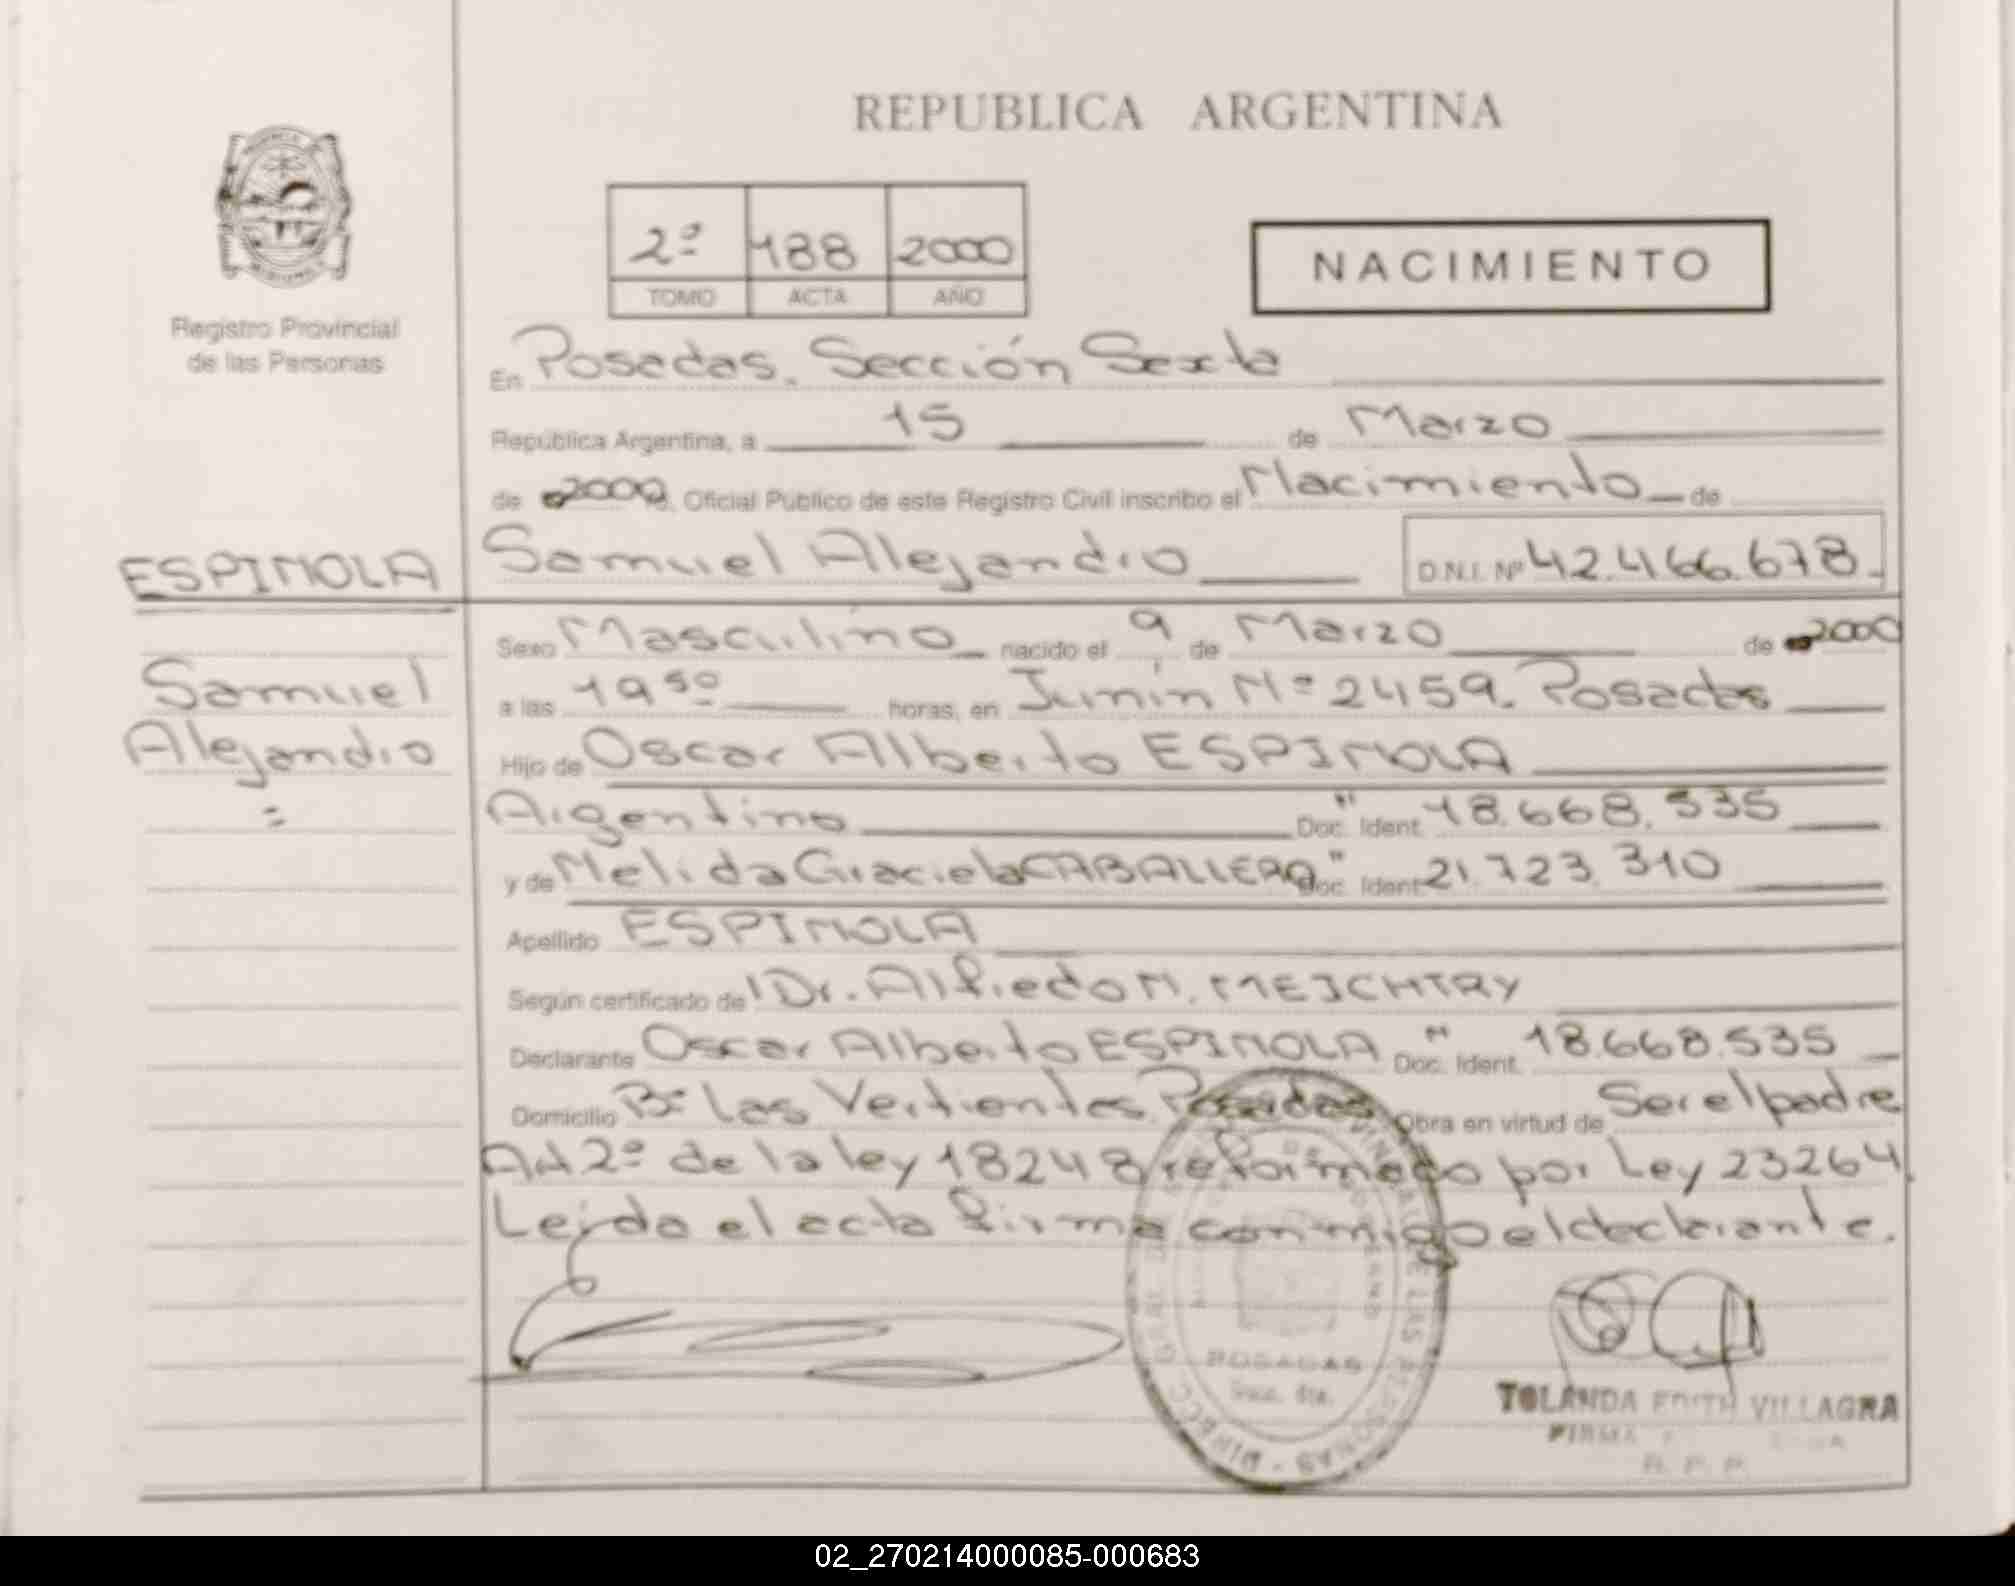 REPUBLICA ARGENTINA
2º 188 2000
TOMO ACTA AÑO
NACIMIENTO
Registro Provincial
de las Personas
En Posadas. Sección Sexta
República Argentina, a 15 de Marzo
de 2000, Oficial Público de este Registro Civil inscribo el Nacimiento de
ESPINOLA
Samuel Alejandro D.N.I. Nº 42.466.678
Samuel
Alejandro
=
Sexo Masculino nacido el 9 de Marzo de 2000
a las 19 50 horas, en Junín Nº 2459. Posadas
Hijo de Oscar Alberto ESPINOLA
Argentino " Doc. Ident. 18.668.535
y de Nelida Graciela CABALLERO " Doc. Ident. 21.723.310
Apellido ESPINOLA
Según certificado de Dr. Alfredo N. NEJCHTRY
Declarante Oscar Alberto ESPINOLA " Doc. Ident. 18.668.535
Domicilio Bº Las Vertientes. Posadas. Obra en virtud de Ser el padre
Art 2º de la ley 18248 reformado por Ley 23264.
Leída el acta firma conmigo el declarante.
POSADAS
Secc. 6ta.
YOLANDA EDITH VILLAGRA
FIRMA
R. P. P.
02_270214000085-000683